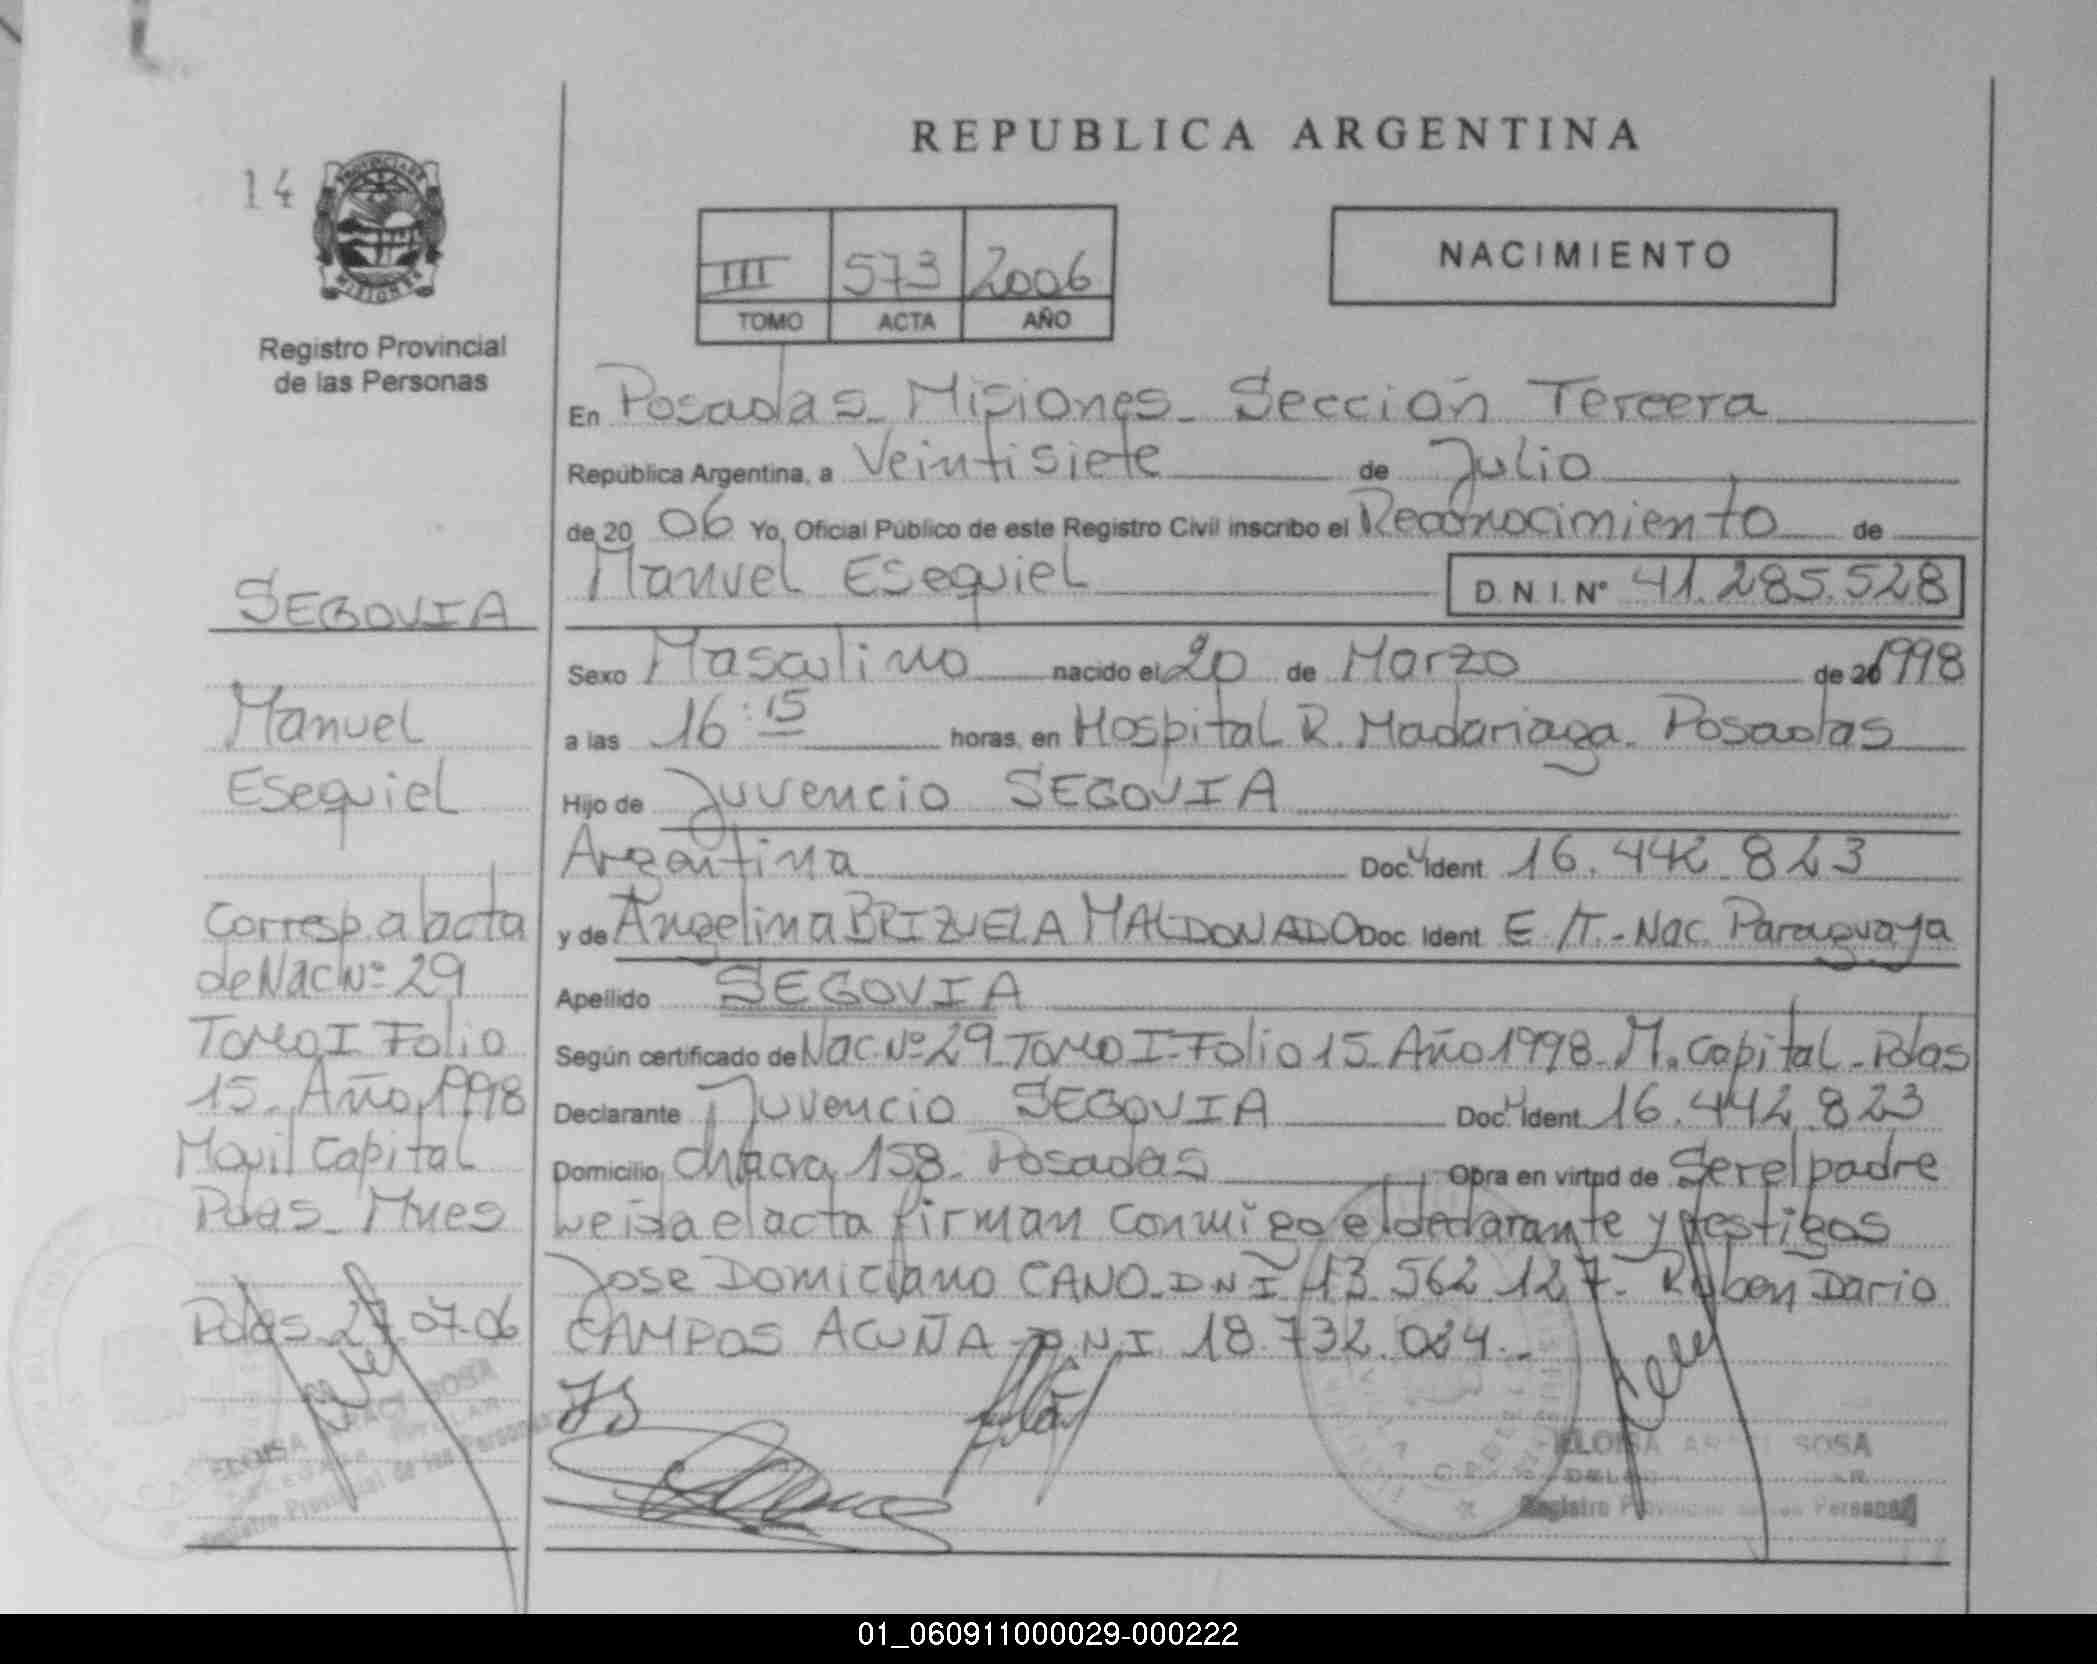 REPUBLICA ARGENTINA
14
PROVINCIA DE
MISIONES
Registro Provincial
de las Personas
III 573 2006
TOMO ACTA AÑO
NACIMIENTO
En Posadas - Misiones - Sección Tercera
República Argentina, a Veintisiete de Julio
de 20 06 Yo, Oficial Público de este Registro Civil inscribo el Reconocimiento de
Manuel Esequiel D.N.I. Nº 41.285.528
Sexo Masculino nacido el 20 de Marzo de 1998
a las 16:15 horas, en Hospital R. Madariaga. Posadas
Hijo de Juvencio SEGOVIA
Argentina Doc. Ident. 16.442.823
y de Angelina BRIZUELA MALDONADO Doc. Ident E/T.- Nac. Paraguaya
Apellido SEGOVIA
Según certificado de Nac. Nº 29 Tomo I - Folio 15 - Año 1998 - M. Capital - Pdas
Declarante Juvencio SEGOVIA Doc. Ident. 16.442.823
Domicilio chacra 158 - Posadas Obra en virtud de Ser el padre
Leida el acta firman conmigo el declarante y testigos
Jose Domiciano CANO - DNI 13.562.127 - Ruben Dario
CAMPOS ACUÑA - DNI 18.732.024.-
JS
ELOISA SOSA
Registro Provincial de las Personas
SEGOVIA
Manuel
Esequiel
Corresp. a l acta
de Nac Nº 29
Tomo I Folio
15 - Año 1998
Movil Capital
Pdas - Mnes
Pdas 27.07.06
ELOISA SOSA
Registro Provincial de las Personas
01_060911000029-000222